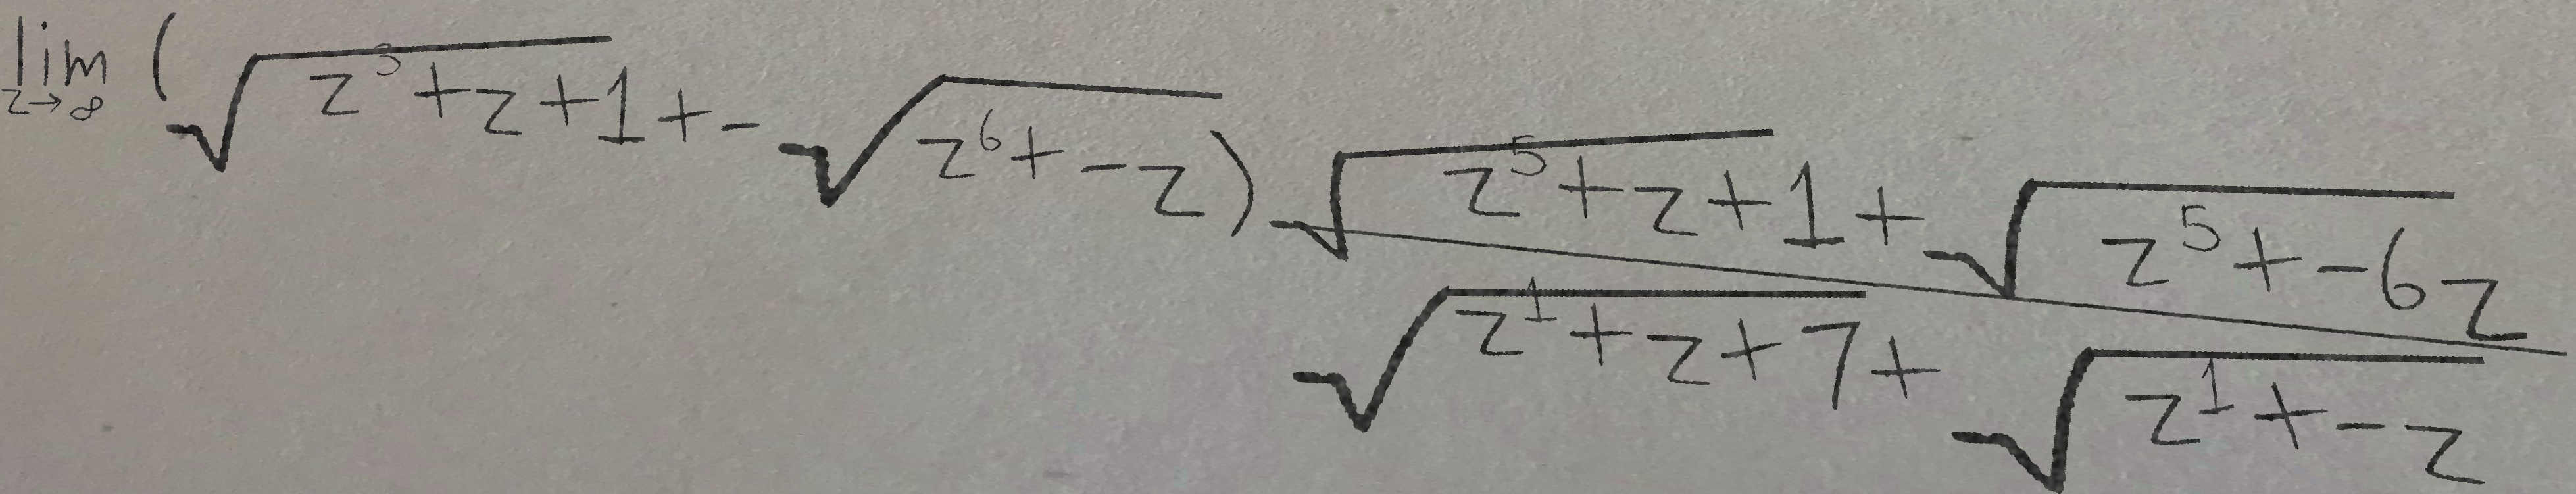 \lim_{z \to \infty} ( \sqrt{z^5 + z + 1} + - \sqrt{z^6 + - z} ) \frac{\sqrt{z^5 + z + 1} + \sqrt{z^5 + - 6z}}{\sqrt{z^1 + z + 7} + \sqrt{z^1 + - z}}